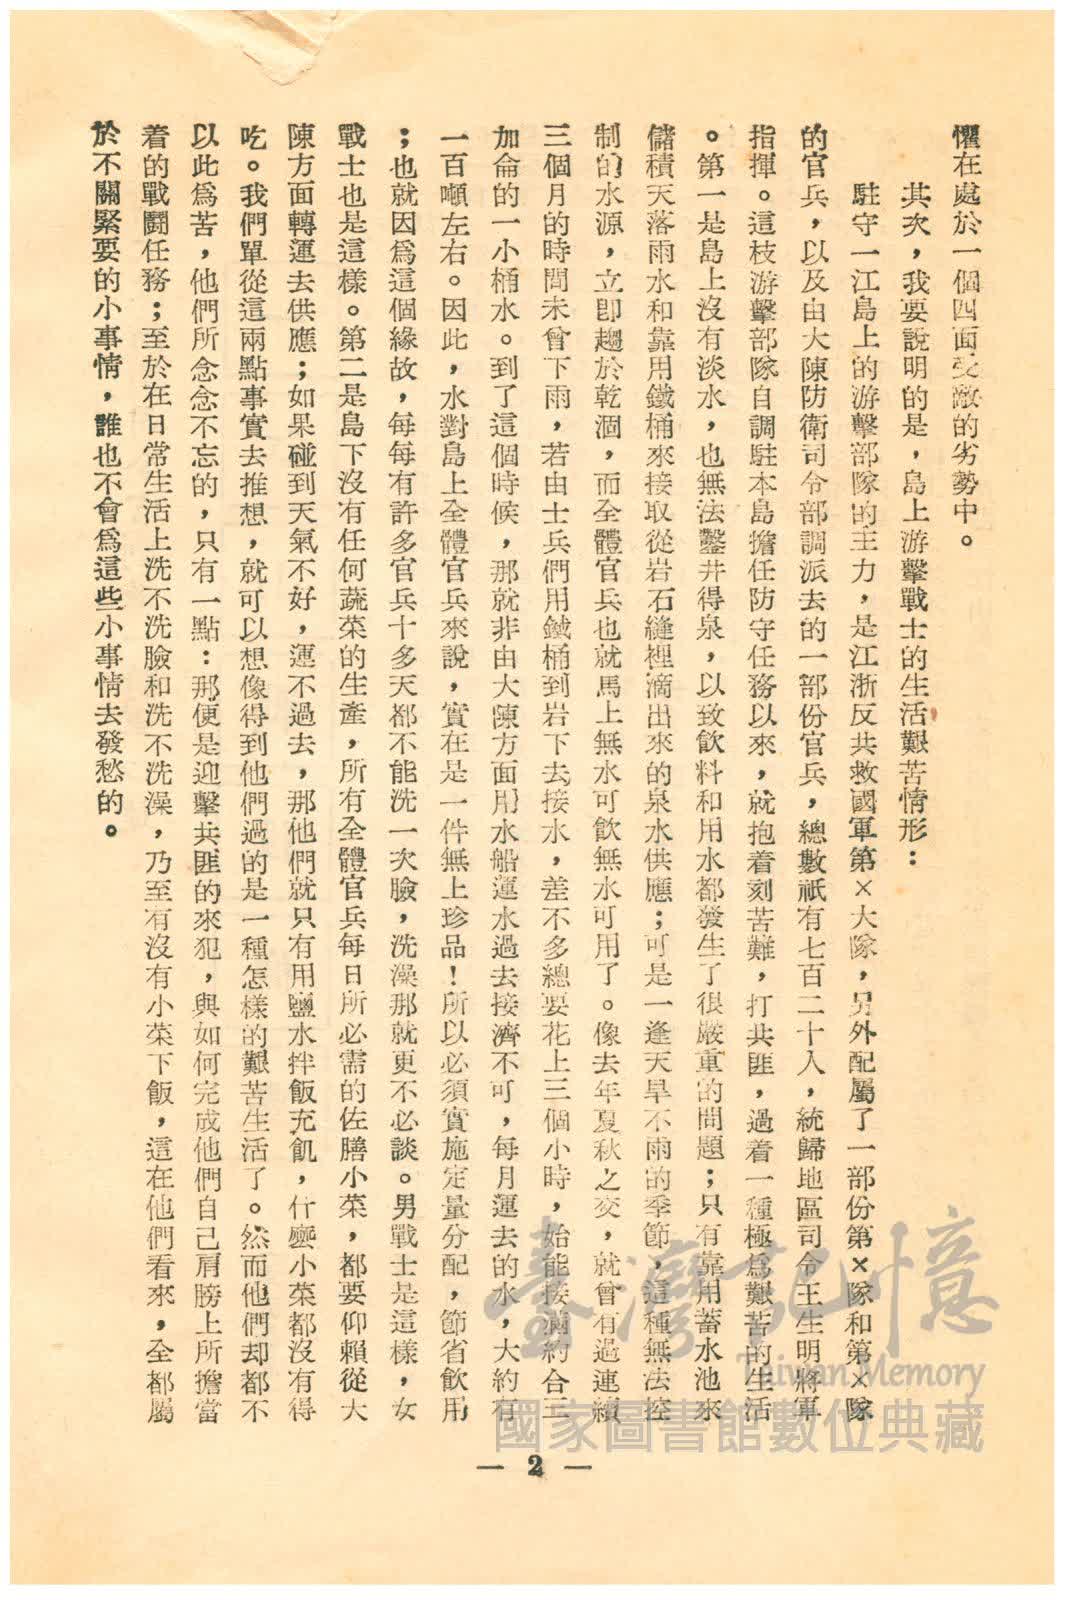 懼在處於一個四面受敵的劣勢中。
其次，我要說明的是，島上游擊戰士的生活艱苦情形：
駐守一江島上的游擊部隊的主力，是江浙反共救國軍第×大隊，另外配屬了一部份第×隊和第×隊
的官兵，以及由大陳防衛司令部調派去的一部份官兵，總數祇有七百二十人，統歸地區司令王生明將軍
指揮。這枝游擊部隊自調駐本島擔任防守任務以來，就抱着刻苦難，打共匪，過着一種極爲艱苦的生活
。第一是島上沒有淡水，也無法鑿井得泉，以致飲料和用水都發生了很嚴重的問題；只有靠用蓄水池來
儲積天落雨水和靠用鐵桶來接取從岩石縫裡滴出來的泉水供應；可是一逢天旱不雨的季節，這種無法控
制的水源，立即趨於乾涸，而全體官兵也就馬上無水可飲無水可用了。像去年夏秋之交，就曾有過連續
三個月的時間未曾下雨，若由士兵們用鐵桶到岩下去接水，差不多總要花上三個小時，始能接滿約合三
加侖的一小桶水。到了這個時候，那就非由大陳方面用水船運水過去接濟不可，每月運去的水，大約有
一百噸左右。因此，水對島上全體官兵來說，實在是一件無上珍品！所以必須實施定量分配，節省飲用
；也就因爲這個緣故，每每有許多官兵十多天都不能洗一次臉，洗澡那就更不必談。男戰士是這樣，女
戰士也是這樣。第二是島下沒有任何蔬菜的生產，所有全體官兵每日所必需的佐膳小菜，都要仰賴從大
陳方面轉運去供應；如果碰到天氣不好，運不過去，那他們就只有用鹽水拌飯充飢，什麼小菜都沒有得
吃。我們單從這兩點事實去推想，就可以想像得到他們過的是一種怎樣的艱苦生活了。然而他們却都不
以此爲苦，他們所念念不忘的，只有一點：那便是迎擊共匪的來犯，與如何完成他們自己肩膀上所擔當
着的戰鬪任務；至於在日常生活上洗不洗臉和洗不洗澡，乃至有沒有小菜下飯，這在他們看來，全都屬
於不關緊要的小事情，誰也不會爲這些小事情去發愁的。
— 2 —
臺灣記憶
Taiwan Memory
國家圖書館數位典藏